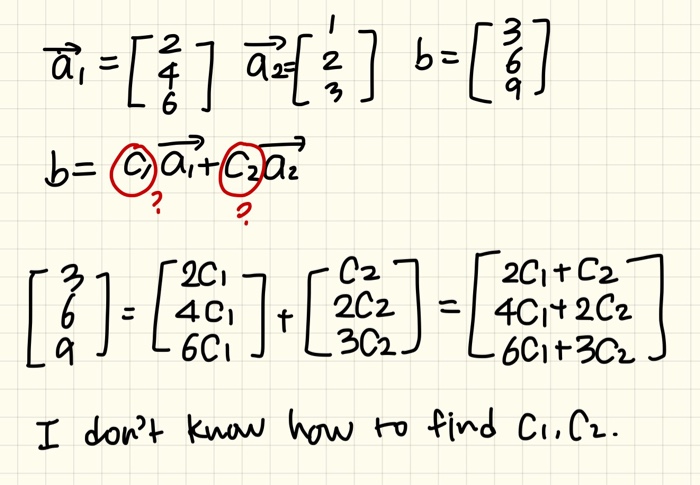 a₁ = [2 4 6] a₂ = [1 2 3] b = [3 6 9]
b = c₁a₁ + c₂a₂
? ?
[3 6 9] = [2c₁ 4c₁ 6c₁] + [c₂ 2c₂ 3c₂] = [2c₁+c₂ 4c₁+2c₂ 6c₁+3c₂]
I don't know how to find c₁, c₂.